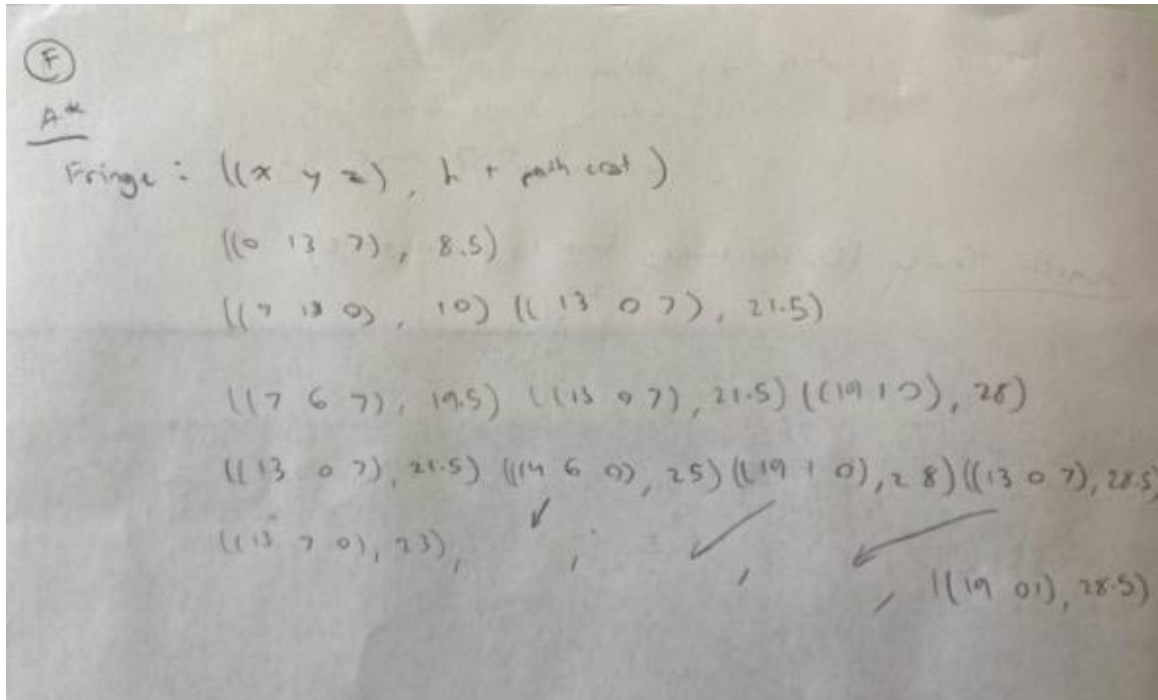 F
A*
Fringe : ((x y z), h + path cost )
((0 13 7), 8.5)
((7 13 0), 10) (( 13 0 7), 21.5)
((7 6 7), 19.5) ((13 0 7), 21.5) ((19 1 0), 28)
((13 0 7), 21.5) ((14 6 0), 25) ((19 1 0), 28) ((13 0 7), 28.5)
((13 7 0), 23), , , , ((19 0 1), 28.5)